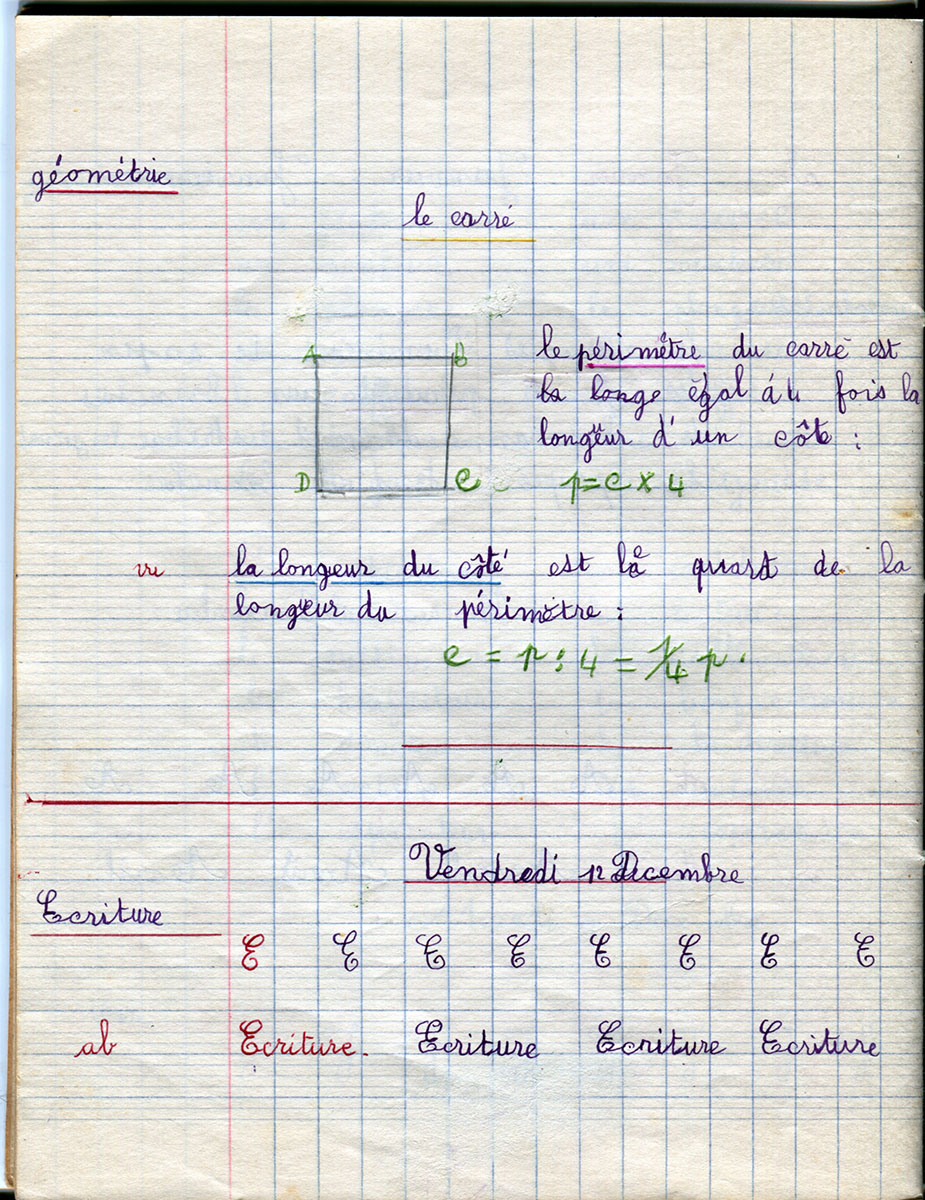 géométrie
le carré
A B
le périmètre du carré est
la longe égal á 4 fois la
longueur d'un côte :
D C
p = c x 4
vu la longeur du côté est le quart de la
longueur du périmètre :
c = p : 4 = 1/4 p.
Vendredi 12 Decembre
Ecriture
E E E E E E E E
ab Ecriture. Ecriture Ecriture Ecriture